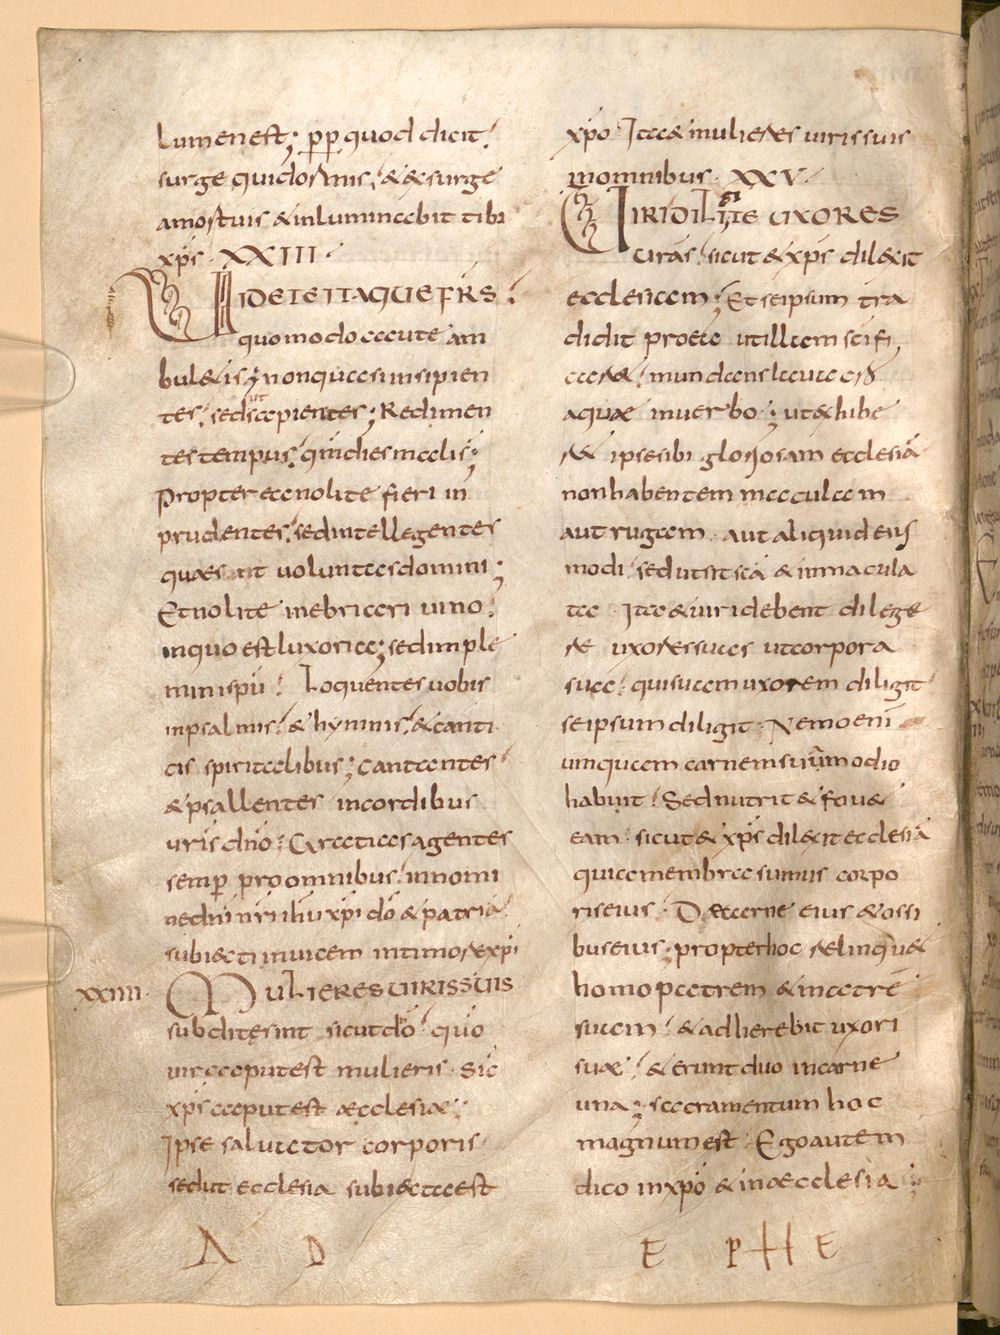 lumen est; pp quod dicit
surge qui dormis, & exsurge
a mortuis & inluminabit tibi
xps · XXIII ·
UIDETE ITAQUE FRS
quomodo caute am
buletis; non quasi insipien
tes, sed ut sapientes; Redimen
tes tempus, qm dies mali s;
Propterea nolite fieri in
prudentes, sed intellegentes
quae sit voluntas domini;
Et nolite inebriari vino,
in quo est luxoria; sed imple
mini spu. Loquentes vobis
in psalmis, & hymnis, & canti
cis spiritalibus; cantantes
& psallentes in cordibus
vris dno; Gratias agentes
semp pro omnibus in nomi
ne dni nri ihu xpi do & patri
subiecti invicem in timore xpi
XXIIII. MULIERES UIRIS SUIS
subdite sint sicut dno quo
vir caput est mulieris Sic
xps caput est aecclesiae;
Ipse salvator corporis
sed ut ecclesia subiecta est
xpo Ita & mulieres viris suis
in omnibus · XXV ·
UIRI DILIGITE UXORES
vras, sicut & xps dilexit
ecclesiam; Et seipsum tra
didit pro ea ut illam scifi
caret, mundans lavacro
aquae in verbo; ut exhibe
ret ipse sibi gloriosam ecclesiā
non habentem maculam
aut rugam · aut aliquid eius
modi, sed ut sit scā & inmacula
ta Ita & viri debent dilege
re uxores suas ut corpora
sua · qui suam uxorem diligit
seipsum diligit · Nemo enī
umquam carnem suūm odio
habuit, Sed nutrit & fovet
eam · sicut & xps dilexit ecclesiā
quia membra sumus corpo
ris eius · De carne eius & ossi
bus eius · propter hoc relinquet
homo patrem & matrē
suam, & adherebit uxori
suae, & erunt duo in carne
una; sacramentum hoc
magnum est · Ego autem
dico in xpo & in aecclesia;
A D E PHE